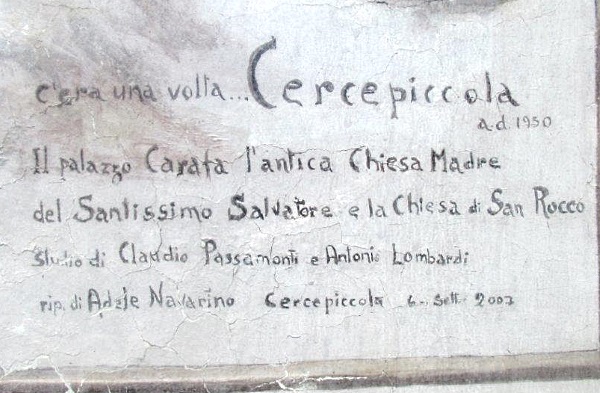 c'era una volta... Cercepiccola
a.d. 1950
Il palazzo Carafa l'antica Chiesa Madre
del Santissimo Salvatore e la Chiesa di San Rocco
Studio di Claudio Passamonti e Antonio Lombardi
rip. di Adele Navarino Cercepiccola 6.. Sett. 2007